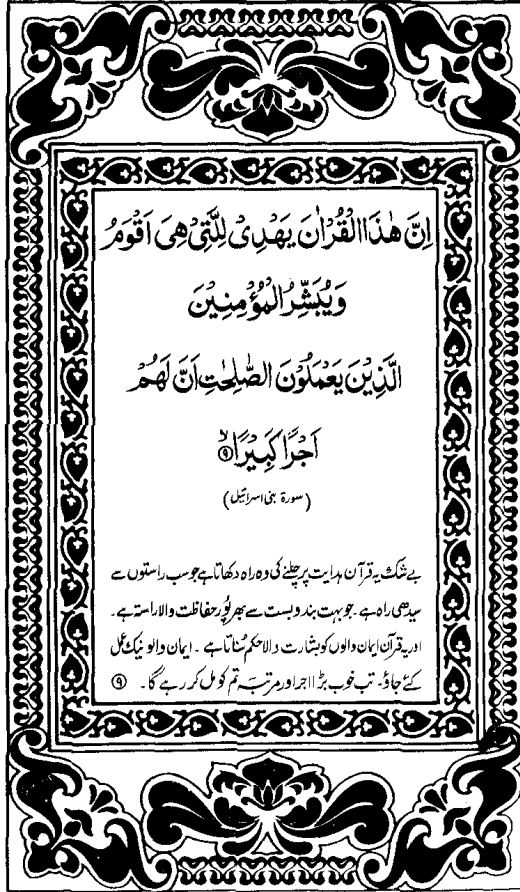 اِنَّ هٰذَا الْقُرْاٰنَ يَهْدِيْ لِلَّتِيْ هِيَ اَقْوَمُ
وَيُبَشِّرُ الْمُؤْمِنِيْنَ
الَّذِيْنَ يَعْمَلُوْنَ الصّٰلِحٰتِ اَنَّ لَهُمْ
اَجْرًا كَبِيْرًا ۙ﴿۹﴾
(سورۃ بنی اسرائیل)
بے شک یہ قرآن ہدایت پر چلنے کی وہ راہ دکھاتا ہے جو سب راستوں سے
سیدھی راہ ہے۔ جو بہت بندوبست سے بھرپُور حفاظت والا راستہ ہے۔
اور یہ قرآن ایمان والوں کو بشارت والا حکم سُناتا ہے۔ ایمان والو نیک عمل
کئے جاؤ۔ تب خوب بڑا اجر اور مرتبہ تم کو مل کر رہے گا۔ ﴿۹﴾